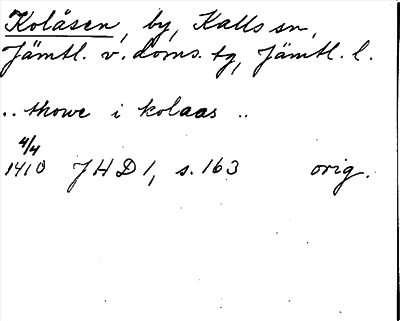 Kolåsen, by, Kalls sn,
Jämtl. v. doms. tg, Jämtl. l.
.. thowe i kolaas ..
4/4
1410 JHD 1, s. 163 orig.